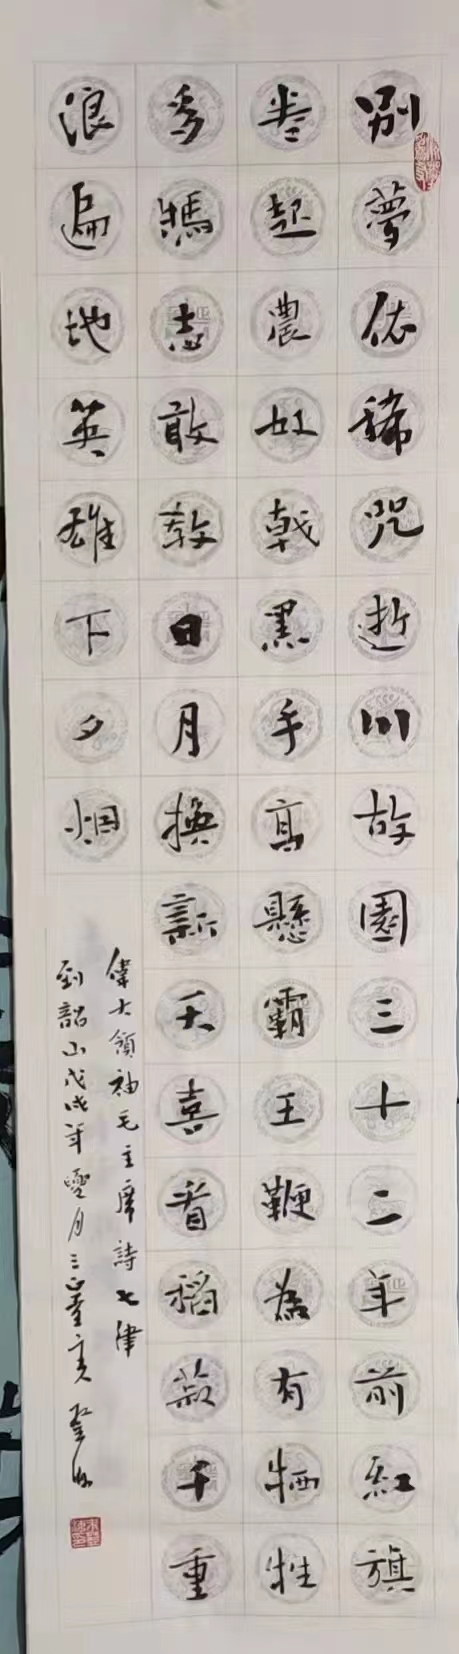 别夢依稀咒逝川故園三十二年前紅旗
卷起農奴戟黑手高懸霸王鞭為有牺牲
多志敢教日月換新天喜看稻菽千重
浪遍地英雄下夕烟
偉大領袖毛主席詩七律
到韶山戊戌年月三